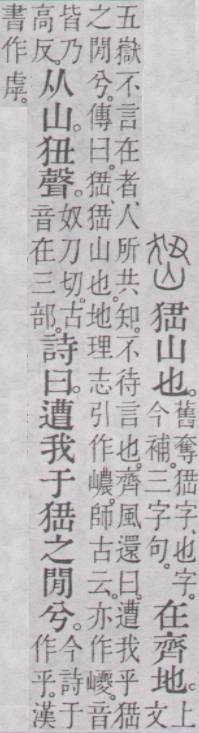 峱山也。舊奪峱字、也字。今補。三字句。在齊地。上文
五嶽不言在者、人所共知。不待言也。齊風還曰。遭我乎峱
之閒兮。傳曰。峱、峱山也。地理志引作嶩。師古云。亦作巙。音
皆乃高反。从山。狃聲。奴刀切。古音在三部。詩曰。遭我于峱之閒兮。今詩于作乎。漢
書作虖。